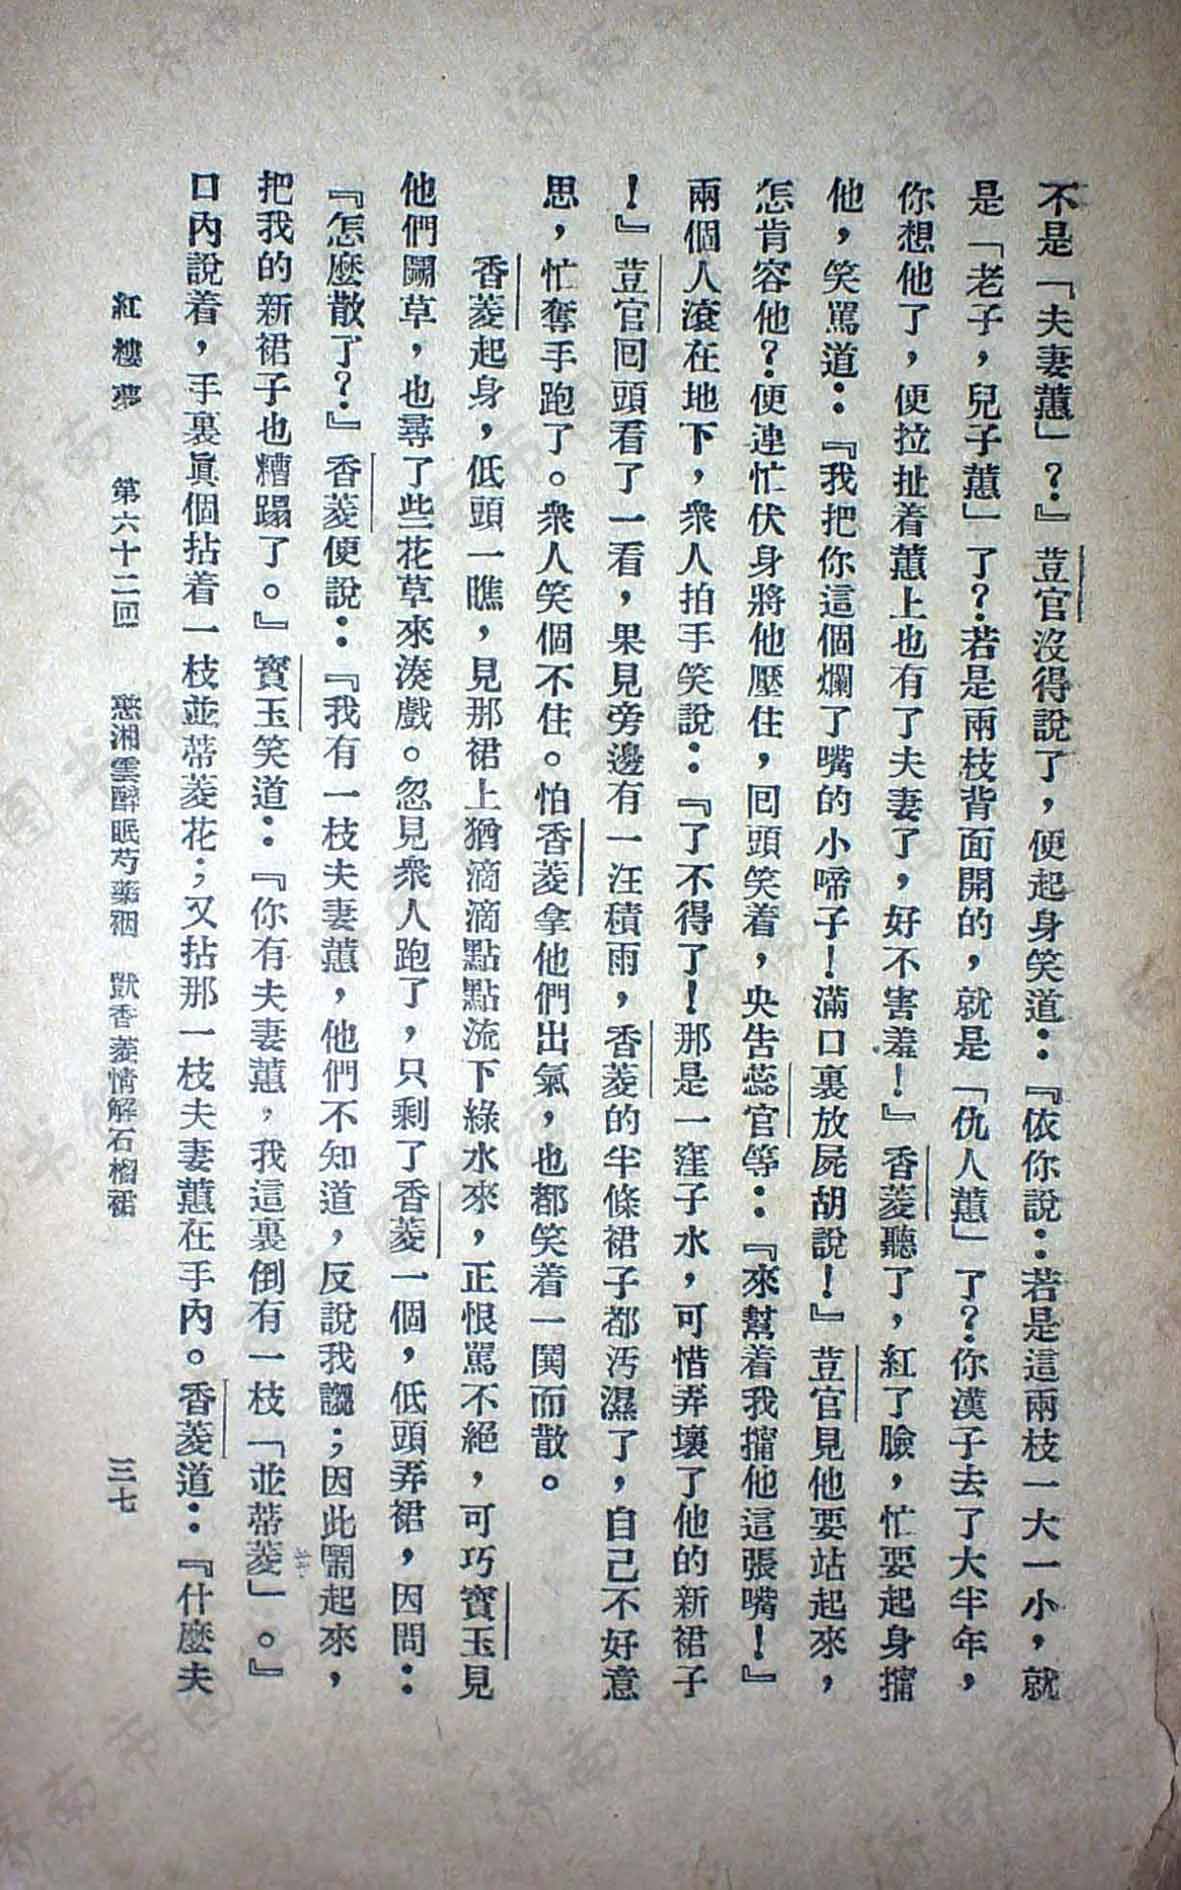 不是「夫妻蕙」？』荳官沒得說了，便起身笑道：『依你說：若是這兩枝一大一小，就
是「老子，兒子蕙」了？若是兩枝背面開的，就是「仇人蕙」了？你漢子去了大半年，
你想他了，便拉扯着蕙上也有了夫妻了，好不害羞！』香菱聽了，紅了臉，忙要起身擰
他，笑罵道：『我把你這個爛了嘴的小啼子！滿口裏放屍胡說！』荳官見他要站起來，
怎肯容他？便連忙伏身將他壓住，回頭笑着，央告蕊官等：『來幫着我擰他這張嘴！』
兩個人滾在地下，衆人拍手笑說：『了不得了！那是一窪子水，可惜弄壞了他的新裙子
！』荳官回頭看了一看，果見旁邊有一汪積雨，香菱的半條裙子都汚濕了，自己不好意
思，忙奪手跑了。衆人笑個不住。怕香菱拿他們出氣，也都笑着一鬨而散。
香菱起身，低頭一瞧，見那裙上猶滴滴點點流下綠水來，正恨罵不絕，可巧寶玉見
他們鬭草，也尋了些花草來湊戲。忽見衆人跑了，只剩了香菱一個，低頭弄裙，因問：
『怎麼散了？』香菱便說：『我有一枝夫妻蕙，他們不知道，反說我謅；因此鬧起來，
把我的新裙子也糟蹋了。』寶玉笑道：『你有夫妻蕙，我這裏倒有一枝「並蒂菱」。』
口內說着，手裏眞個拈着一枝並蒂菱花；又拈那一枝夫妻蕙在手內。香菱道：『什麼夫
紅樓夢　第六十二回　憨湘雲醉眠芍藥裀　獃香菱情解石榴裙　三七
济南市图书馆